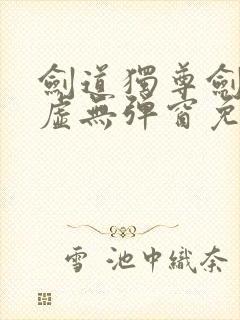 劍道獨尊劍
虛無彈窗免
雪 池中織奈